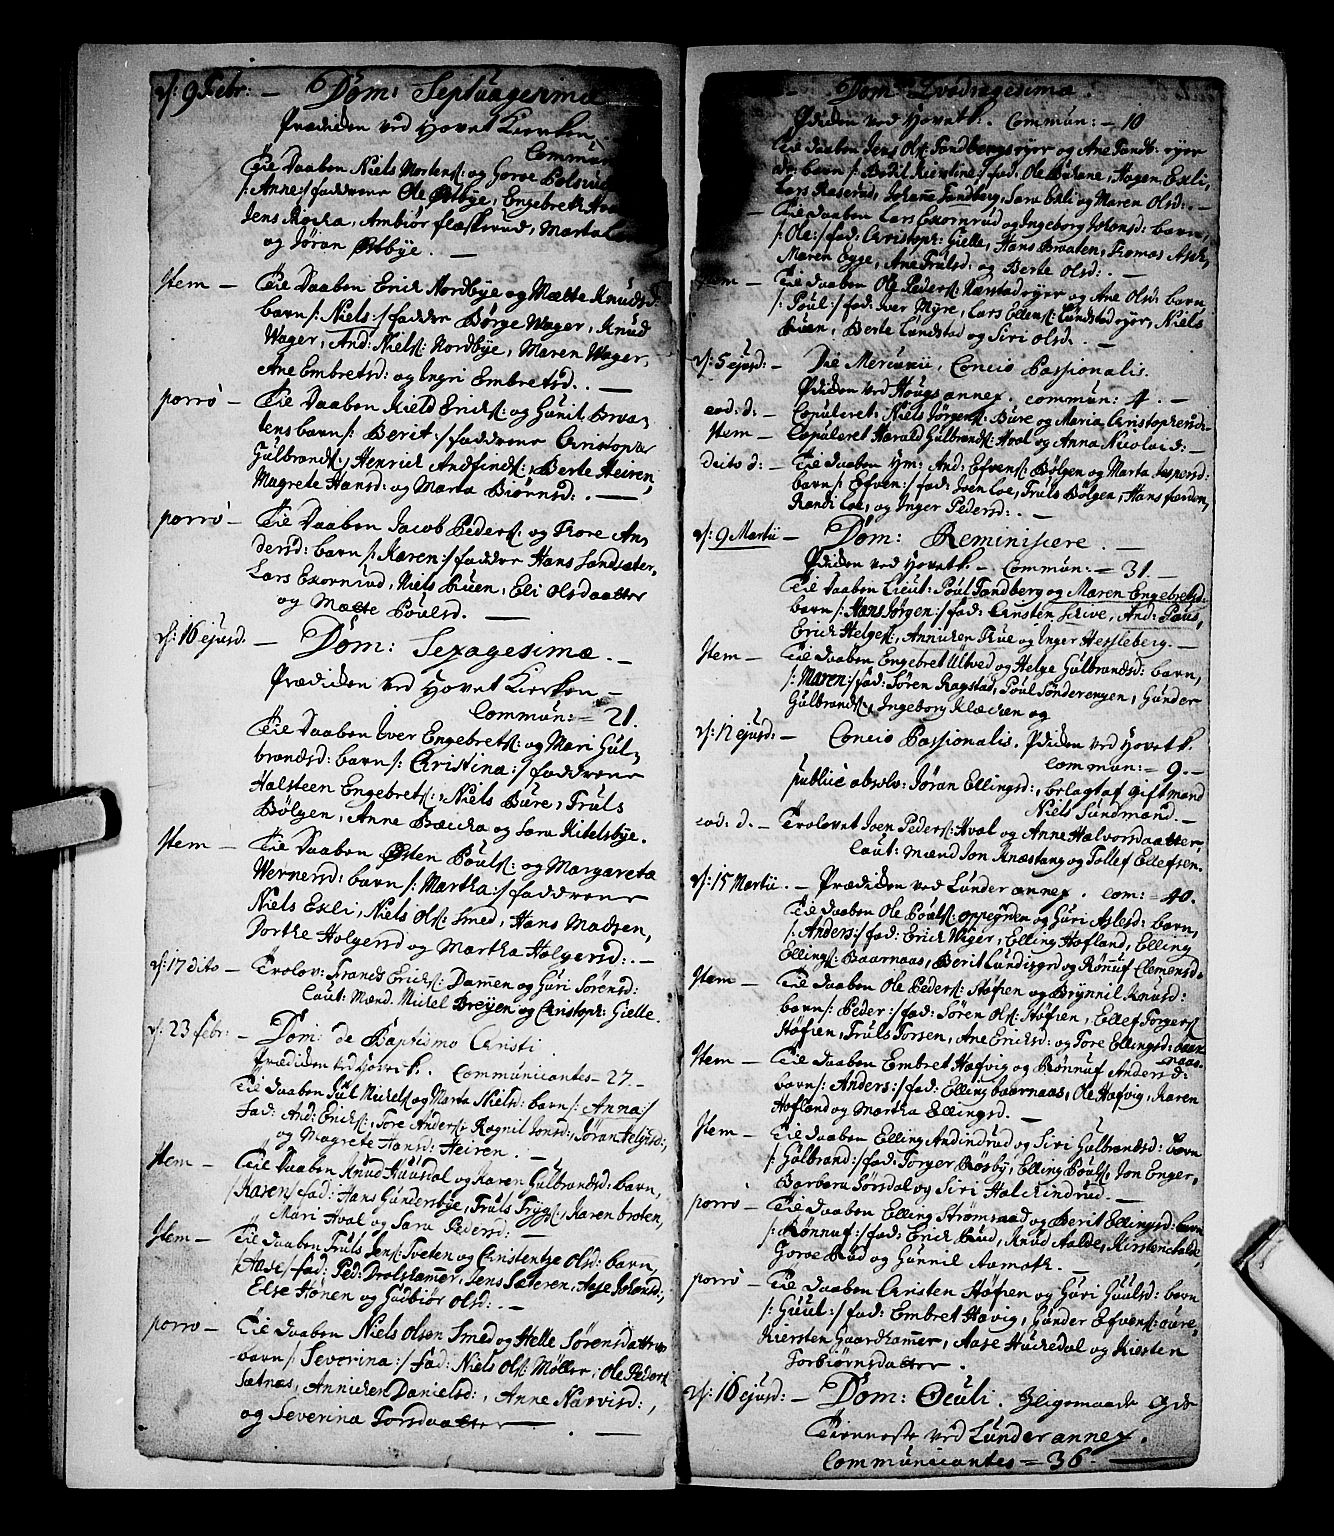 d: 9 Febr: — Dom: Septuagesimæ
Prædiken ved Hovet Kierken.
Commun:
Till Daaben Niels Mortens: og Gorve Polsrud
/: Anne :/ faddrene Ole Østbye, Engebreth
Jens Kocka, Ambiør flaskerud, Marta
og Jøran Østbye. —
Item — Till Daaben Erich Nordbye og Mætte Knudsd:
barn /: Niels :/ faddre Børge Wager, Knud
Wager, And: Niels: Nordbye, Maren Wager,
Ane Embretsd: og Ingri Embretsd. —
porrò — Till Daaben Kield Ericks: og Gunil Braa-
tens barn /: Berit :/ faddrene Christopher
Gulbrands:, Henrich Andfinds:, Berte Heiren,
Magrete Hansd: og Marta Biørnsd: —
porrò — Till Daaben Jacob Peders: og Thore An-
dersd: barn /: Karen :/ faddre Hans Sandsæter,
Lars Exornrud, Niels Buen, Eli Olsdaatter
og Mætte Poulsd. —
d: 16 ejusd: — Dom: Sexagesimæ. —
Prædiken ved Hovet Kierken —
Commun: = 21.
Till Daaben Iver Engebrets: og Mari Gul-
brandsd: barn /: Christina :/ faddrene
Halsteen Engebrets:, Niels Bure, Truls
Bølgen, Anne Bæcka og Sara Kitelsbye.
Item — Till Daaben Østen Pouls: og Margareta
Wernersd: barn /: Martha :/ faddrene
Niels Exli, Niels Ols: Smed, Hans Madsen,
Dorthe Holgersd og Martha Holgersd: —
d: 17 dito — Trolov: Frands Ericks: Dammen og Guri Sørensd:
Caut: Mænd. Mickel Breyen og Christoph: Gielle.
d: 23 febr: — Dom: de Baptismo Christi.
Prædiken ved Hovetk. Communicantes — 27. —
Till Daaben Juel Mickels: og Marta Nielsd: barn /: Anna :/
fad: And: Ericks:, Tore Anders: Ragnil Jonsd:, Jøran Helgesd:,
og Magrete Hansd: Heiren. —
Item — Till Daaben Knud Huusdal og Karen Gulbrandsd: barn,
/: Karen :/ fad: Hans Gundersbye, Truls Trygs:, Karen broten,
Mari Hval og Sara Pedersd: —
Item — Till daaben Truls Jens: Tveten og Christentze Olsd: barn,
/: Aase :/ fad: Ped: Drolshammer, Jens Sæteren, Aase Johansd:,
Else Hønen og Gudbiør Olsd: —
porro — Till daaben Niels Olsen Smed og Helle Sørensdatters
barn /: Severina :/ fad: Niels Ols: Møller, Ole Peders:
Sætnas, Anniken Danielsd:, Anne Narvisd:,
og Severina Torsdaatter —
Dom: Qvadragesimæ.
Pdiken ved Hovetk. Commun: — 10
Till daaben Jens Ols: Tandbergs ejer og Ane Tandb: ejer
barn /: Bodil Kierstine :/ fad: Ole Bukane, Hagen Exli,
Lars Kaserud, Johanne Tandberg, Sara Exli og Maren Olsd: —
— Till daaben Lars Exornrud og Ingeborg Johansd: barn,
/: Ole :/ fad: Christoph: Gielle, Hans Braaten, Thomas Ask,
Maren Egge, Ane Trulsd: og Berte Olsd: —
Item — Till daaben Ole Peders: Karstad ejer og Ane Olsd: barn
/: Poul :/ fad: Iver Myre, Lars Edens: Lundstad ejer, Niels
Buen, Berte Lundstad og Siri Olsd: —
d: 5 ejusd: — Die Mercurii, Concio Passionalis.
Pdiken ved Hougs annex. commun: 4. —
eod: d: — Copuleret: Niels Jørgens: Bure og Maria Christophersd: —
Item — Copuleret Harald Gulbrands: Hval og Anna Nicolaid: —
dicto d: — Till daaben Hm: And: Efvens: Bølgen og Marta Jespersd:
barn /: Efven :/ fad: Joen Loe, Truls Bølgen, Hans farden,
Randi Loe, og Inger Pedersd: —
d: 9 Martii — Dom: Reminiscere. —
Pdiken ved Hovetk — Commun: = 31. —
Till daaben Lieut: Poul Tandberg og Maren Engebretsd:
barn /: Hans Jørgen :/ fad: Christen Scrive, And: Paus,
Erich Helges:, Anniken Prue og Inger Hessleberg. —
Item — Till daaben Engebret Ultved og Helge Gulbrandsd: barn,
/: Maren :/ fad: Søren Ragstad, Poul Sønderengen, Gunder
Gulbrands:, Ingeborg Klæcken og
d: 12 ejusd: — Concio Passionalis. Pdiken ved Hovetk.
commun: = 9. —
publicè absolv: Jøran Ellingsd:, belagt af gift mand
Niels Sundmand. —
eod: d. — Trolovet Joen Peders: Hval og Anne Halvorsdaatter,
Caut: mænd Jon Knæstang og Tollef Ellefsen.
d: 15 Martii. — Prædiken ved Lunder annex. com: = 40.
Till daaben Ole Pouls: oppegrden og Guri Aslesd: barn,
/: Anders :/ fad: Erick Wiger, Elling Hofland, Elling
Ellings: Baarnaas, Berit Lundisgrd og Rønnuf Clemensd.
Item — Till daaben Ole Peders: Høfien og Brynnil Knudsd:
barn /: Peder :/ fad: Søren Ols: Høfien, Ellef Torgers:
Høfien, Truls Torsen, Ane Ericksd: og Tore Ellingsd: baar-
naas.
Item — Till daaben Embret Hafvig og Rønnuf Andersd:
barn /: Anders :/ fad: Elling baarnaas, Ole Hafvig, Karen
Hofland og Martha Ellingsd. —
Item — Till daaben Elling Andindrud og Siri Gulbrandsd: barn
/: Gulbrand :/ fad: Torger Røsby, Elling Pouls:, Jon Enger,
Barbara Sørsdal og Siri Halckindrud. —
porrò — Till daaben Elling Strømsaad og Berit Ellingsd: barn
/: Rønnuf :/ fad: Erick Bud, Knud Aalde, Kirsten Aalde,
Gorve Rud og Gunnil Aamoth. —
porrò — Till daaben Christen Høfien og Guri Guulsd: barn
/: Guul :/ fad: Embret Havig, Gunder Efvens: aure,
Kiersten Gaardhammer, Aase Huckedal og Kirsten
Torbiørnsdatter.
d: 16 ejusd: — Dom: Oculi. Ligemaade Gds
Tienneste ved Lunder annex.
Communicantes = 36. —